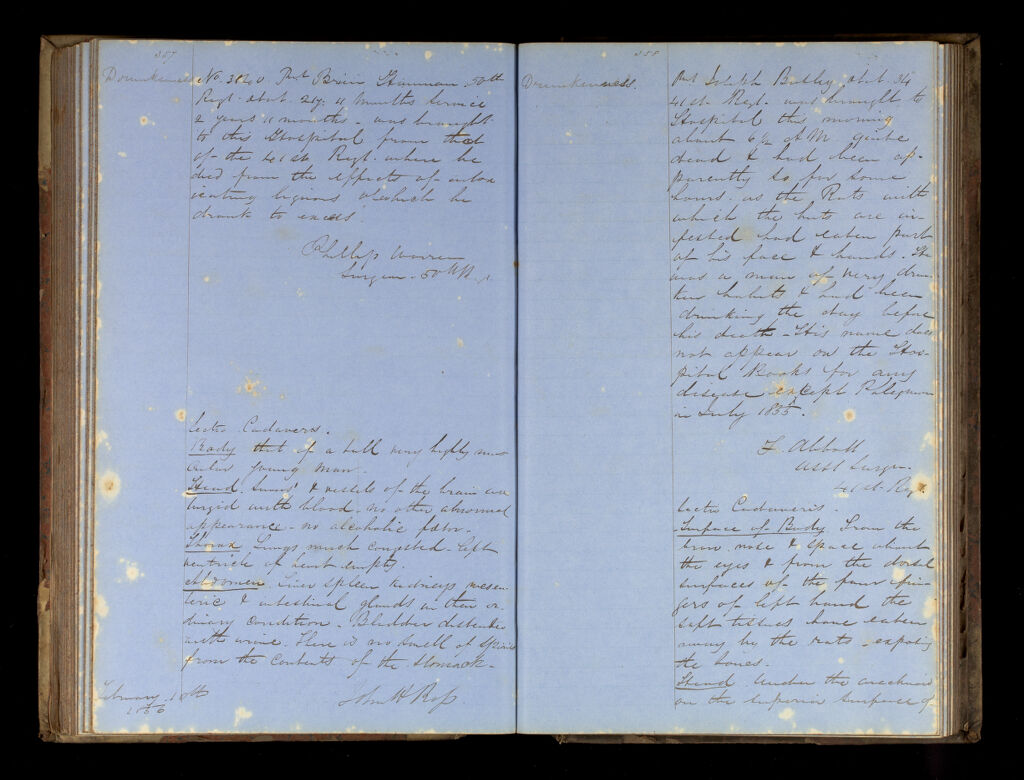 357
Drunkenness
No. 3120 Prvt Brin Hannan 50th
Regt. ætat. 27: 11 Months Service
2 years 11 months. was brought
to this Hospital from that
of the 41st Regt. where he
died from the effects of intox
icating liquors which he
drank to excess.
Phillip Warren
Surgeon. 50th Regt.
Sectio Cadaveris.
Body that of a tall very highly mus
cular young man.
Head. Sinus' & vessels of the brain en
turged with blood. no other abnormal
appearance. no alcoholic fætor.
Thorax Lungs much congested. left
ventricle of heart empty.
Abdomen Liver spleen kidneys mesen
teric & intestinal glands in their or
dinary condition. Bladder distended
with urine. There is no smell of Spirits
from the contents of the Stomach.
February 10th
1856
John H Ross
358
Drunkenness.
Prvt Joseph Batley ætat. 34
41st. Regt. was brought to
Hospital this morning
about 6½ AM quite
dead & had been ap-
parently so for some
hours. as the Rats with
which the huts are in-
fested had eaten part
of his face & hands. He
was a man of very drun
ken habits & had been
drinking the day before
his death. His name does
not appear on the Hos-
pital Books for any
disease except Phlegmon
in July 1855.
F. Abbott
Asst Surgn.
41st. Regt.
Sectio Cadaveris.
Surface of Body From the
brow, nose & space about
the eyes & from the dorsal
surfaces of the four fin-
gers of left hand the
soft tissues have eaten
away by the rats exposing
the bones.
Head. Under the arachnoid
on the superior surface of